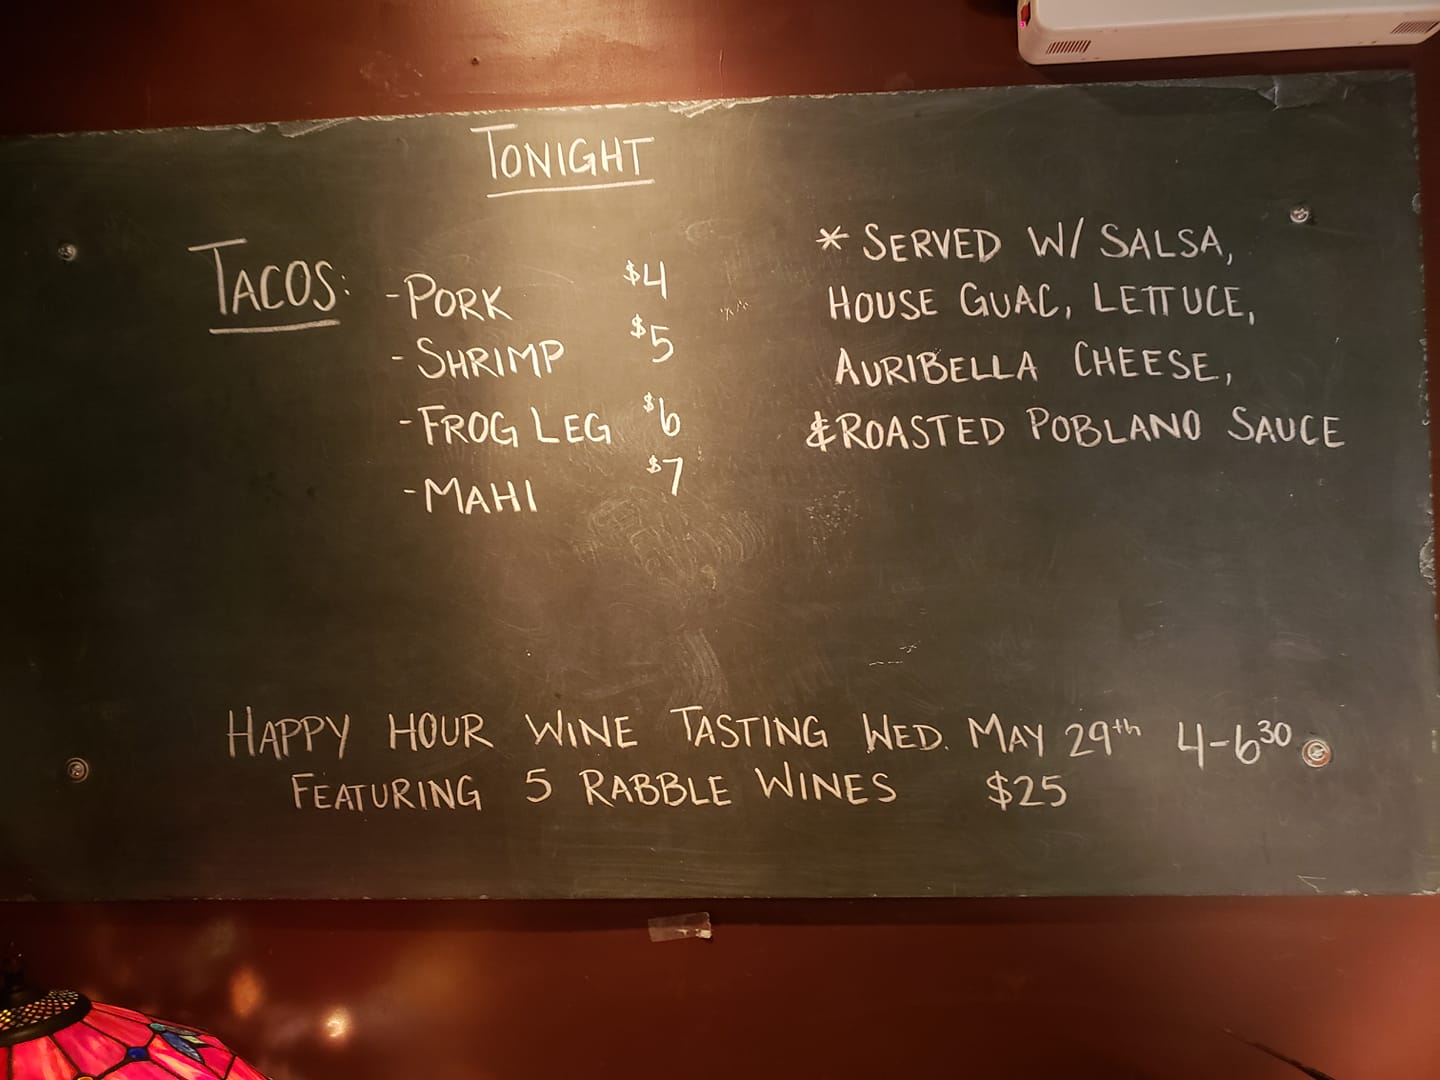 TONIGHT
TACOS:
-PORK $4
-SHRIMP $5
-FROG LEG $6
-MAHI $7
* SERVED W/ SALSA,
HOUSE GUAC, LETTUCE,
AURIBELLA CHEESE,
&ROASTED POBLANO SAUCE
HAPPY HOUR WINE TASTING WED. MAY 29th 4-630
FEATURING 5 RABBLE WINES $25